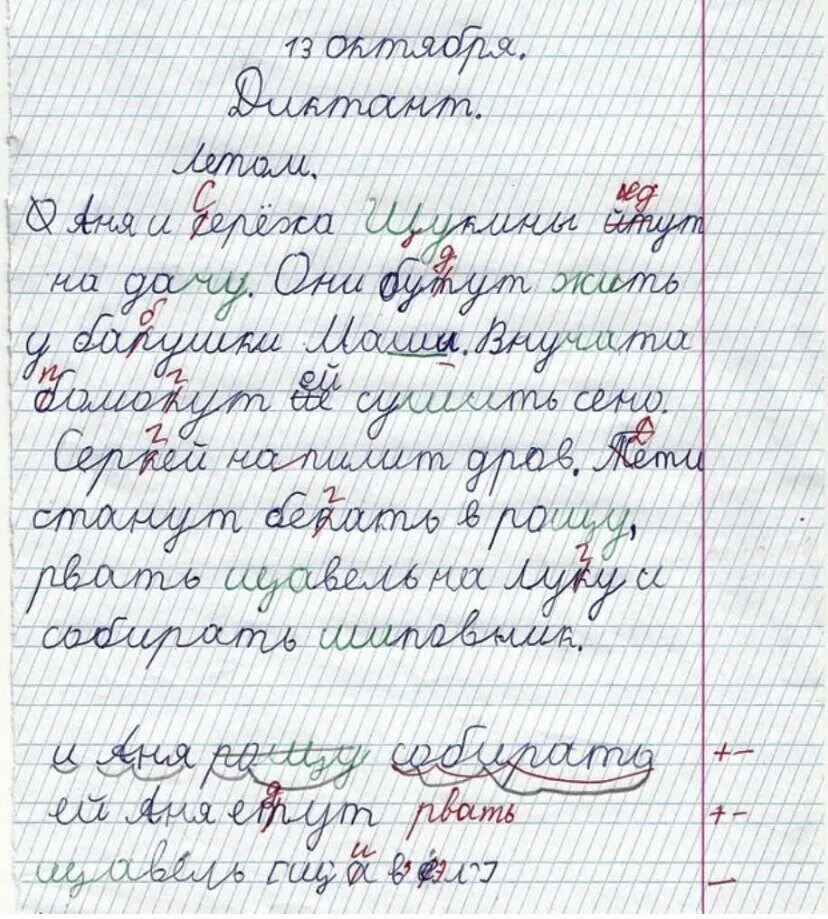 13 октября.
Диктант.
Летом.
Аня и Серёжа Щукины едут
на дачу. Они будут жить
у бабушки Маши. Внучата
помогут ей сушить сено.
Сергей напилит дров. Дети
станут бегать в рощу,
рвать щавель на лугу и
собирать шиповник.
и Аня рощу собирать +-
ей Аня едут рвать +-
щавель –